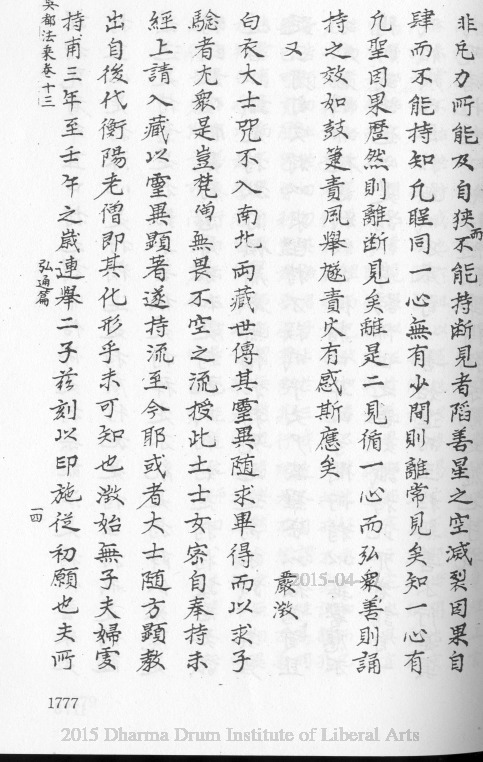 非凡力所能及自狹而不能持断見者陷善星之空滅裂因果自
肆而不能持知凢聖同一心無有少間則離常見矣知一心有
凢聖因果歷然則離断見矣離是二見循一心而弘衆善則誦
持之效如鼓籊責風舉燧責火有感斯應矣
又
嚴澂
白衣大士咒不入南北両藏世傳其靈異随求畢得而以求子
驗者尤衆是豈梵僧無畏不空之流授此土士女宻自奉持未
經上請入藏以靈異顕著遂持流至今耶或者大士随方顕教
出自後代衡陽老僧即其化形乎未可知也澂始無子夫婦䖍
持甫三年至壬午之嵗連舉二子茲刻以印施従初願也夫所
吳都法乘卷十三
弘通篇
一四
1777
2015-04-
2015 Dharma Drum Institute of Liberal Arts